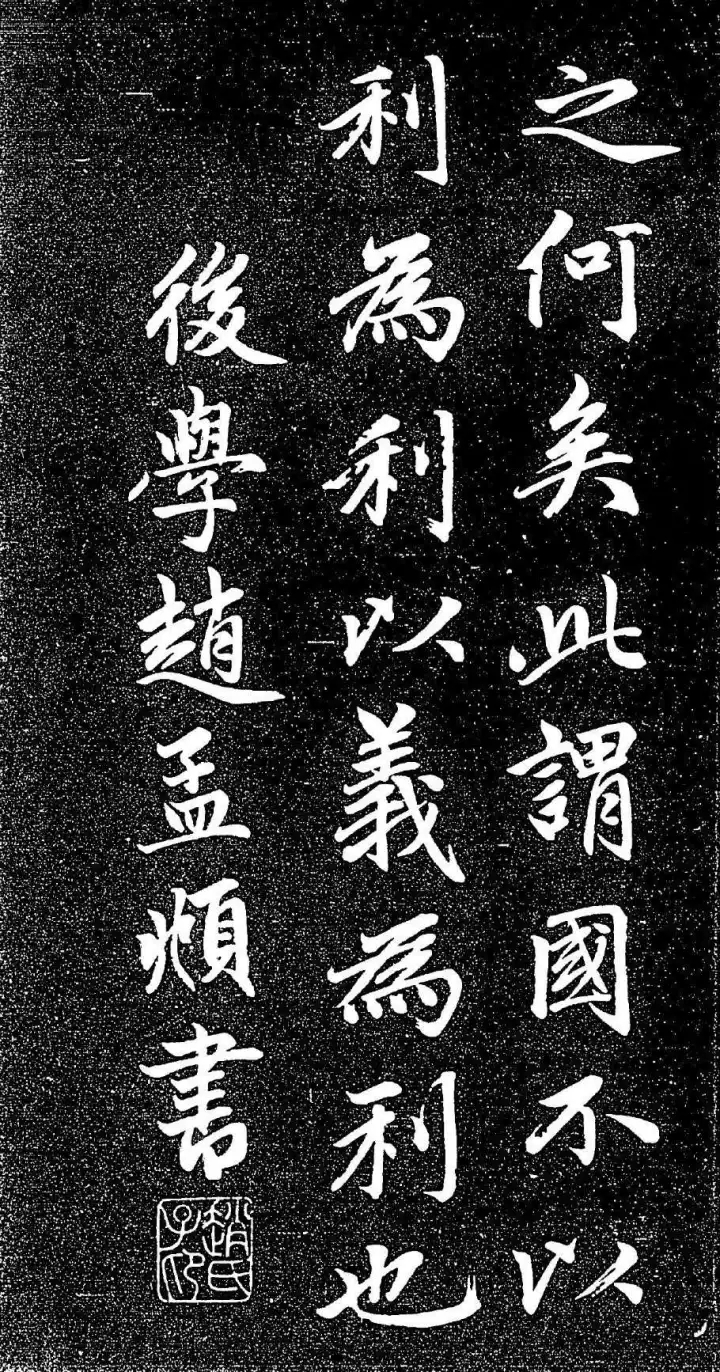 之何矣此謂國不以
利為利以義為利也
後學趙孟頫書
趙氏子印